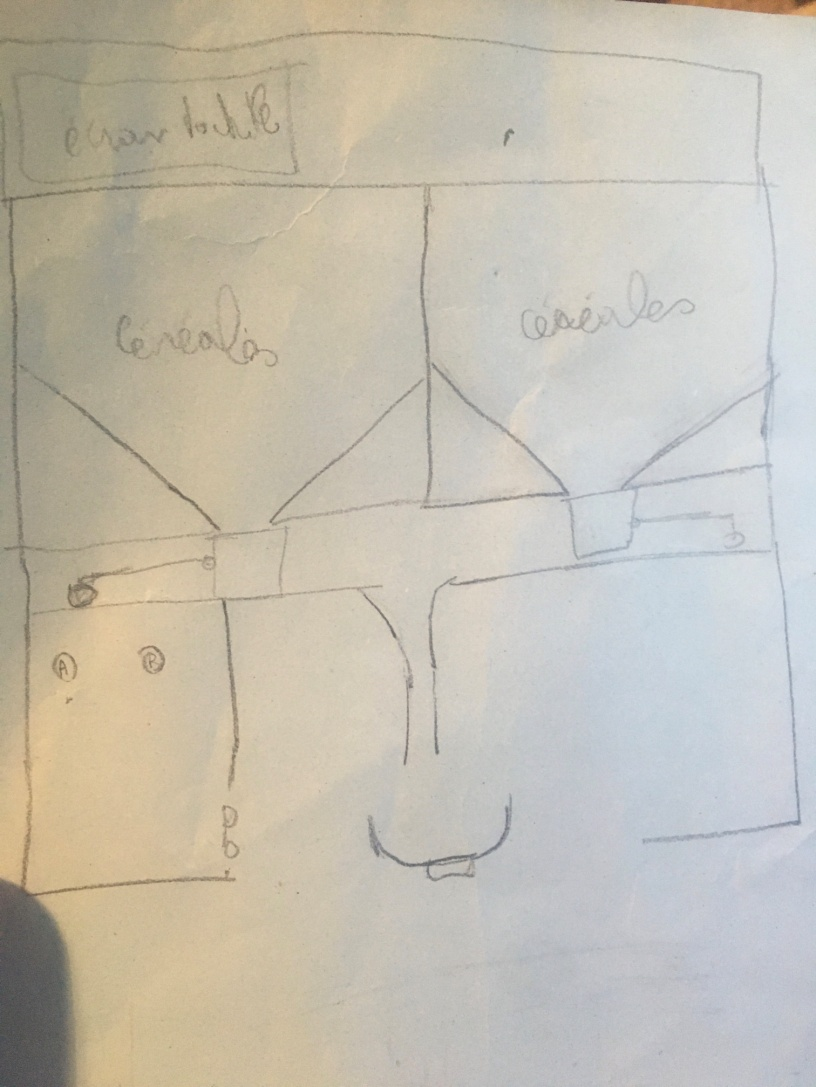 écran tactile
céréales
céréales
A B